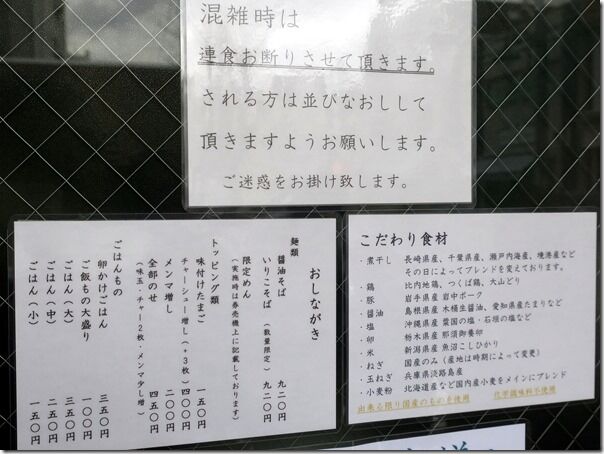 混雑時は
連食お断りさせて頂きます。
される方は並びなおしして
頂きますようお願いします。
ご迷惑をお掛け致します。
おしながき
麺類
醤油そば 九二〇円
いりこそば（数量限定） 九二〇円
限定めん
（実施時は券売機上に記載しております）
トッピング類
味付けたまご 一五〇円
チャーシュー増し（+3枚） 四〇〇円
メンマ増し 二〇〇円
全部のせ 四五〇円
（味玉・チャー2枚・メンマ少し増）
ごはんもの
卵かけごはん 三五〇円
ご飯もの大盛り 一〇〇円
ごはん（大） 三五〇円
ごはん（中） 二五〇円
ごはん（小） 一五〇円
こだわり食材
・煮干し 長崎県産、千葉県産、瀬戸内海産、境港産など
その日によってブレンドを変えております。
・鶏 比内地鶏、つくば鶏、大山どり
・豚 岩手県産 岩中ポーク
・醤油 島根県産 木桶生醤油、愛知県産たまりなど
・塩 沖縄県産 粟国の塩・石垣の塩など
・卵 栃木県産 那須御養卵
・米 新潟県産 魚沼こしひかり
・ねぎ 国産のみ（産地は時期によって変更）
・玉ねぎ 兵庫県淡路島産
・小麦粉 北海道産など国内産小麦をメインにブレンド
出来る限り国産のものを使用 化学調味料不使用